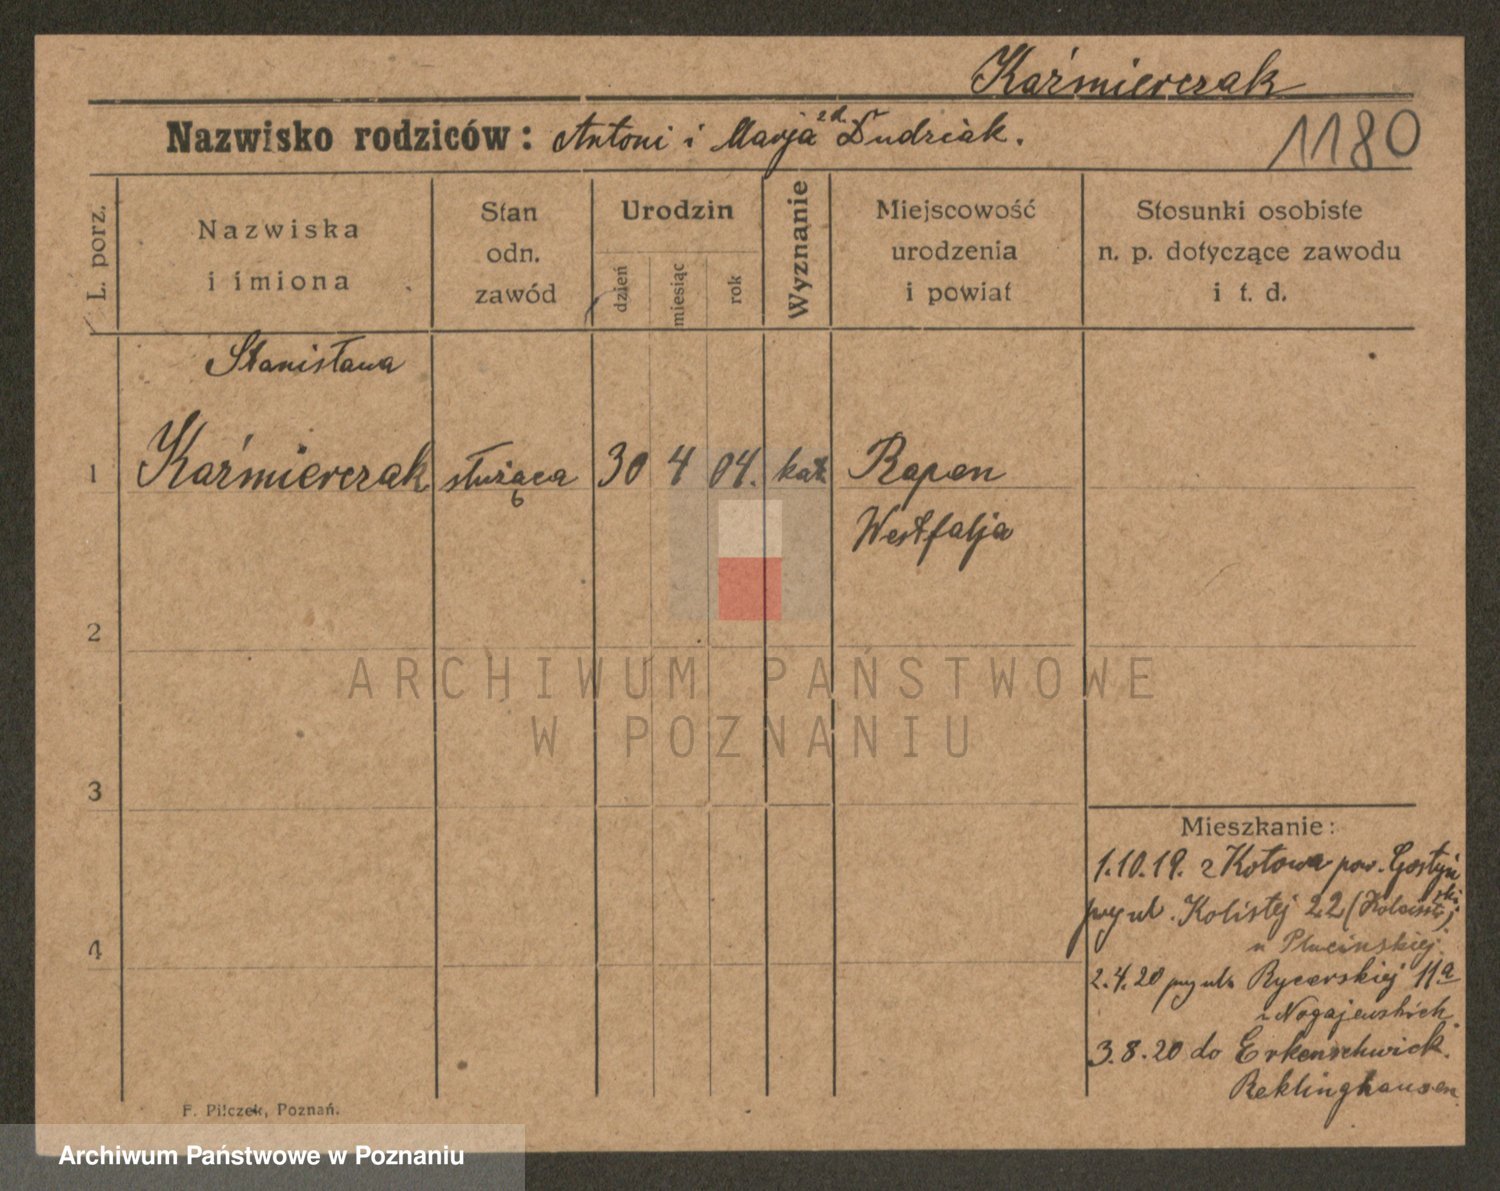 Kaźmierczak
Nazwisko rodziców: Antoni i Marja zd. Dudziak.
1180
L. porz.
Nazwiska
i imiona
Stan
odn.
zawód
Urodzin
dzień
miesiąc
rok
Wyznanie
Miejscowość
urodzenia
i powiat
Stosunki osobiste
n. p. dotyczące zawodu
i t. d.
Stanisława
1 Kaźmierczak służąca 30 4 04. kat. Rapen
Westfalja
2
3
4
Mieszkanie:
1.10.19. z Kotowa pow. Gostyń
ski
przy ul. Kolistej 22
u Plucińskiej.
2.4.20 przy ul. Rycerskiej 11a
u Nogajewskich.
3.8.20 do Erkenschwick.
Reklinghausen.
F. Pilczek, Poznań.
ARCHIWUM PAŃSTWOWE
W POZNANIU
Archiwum Państwowe w Poznaniu